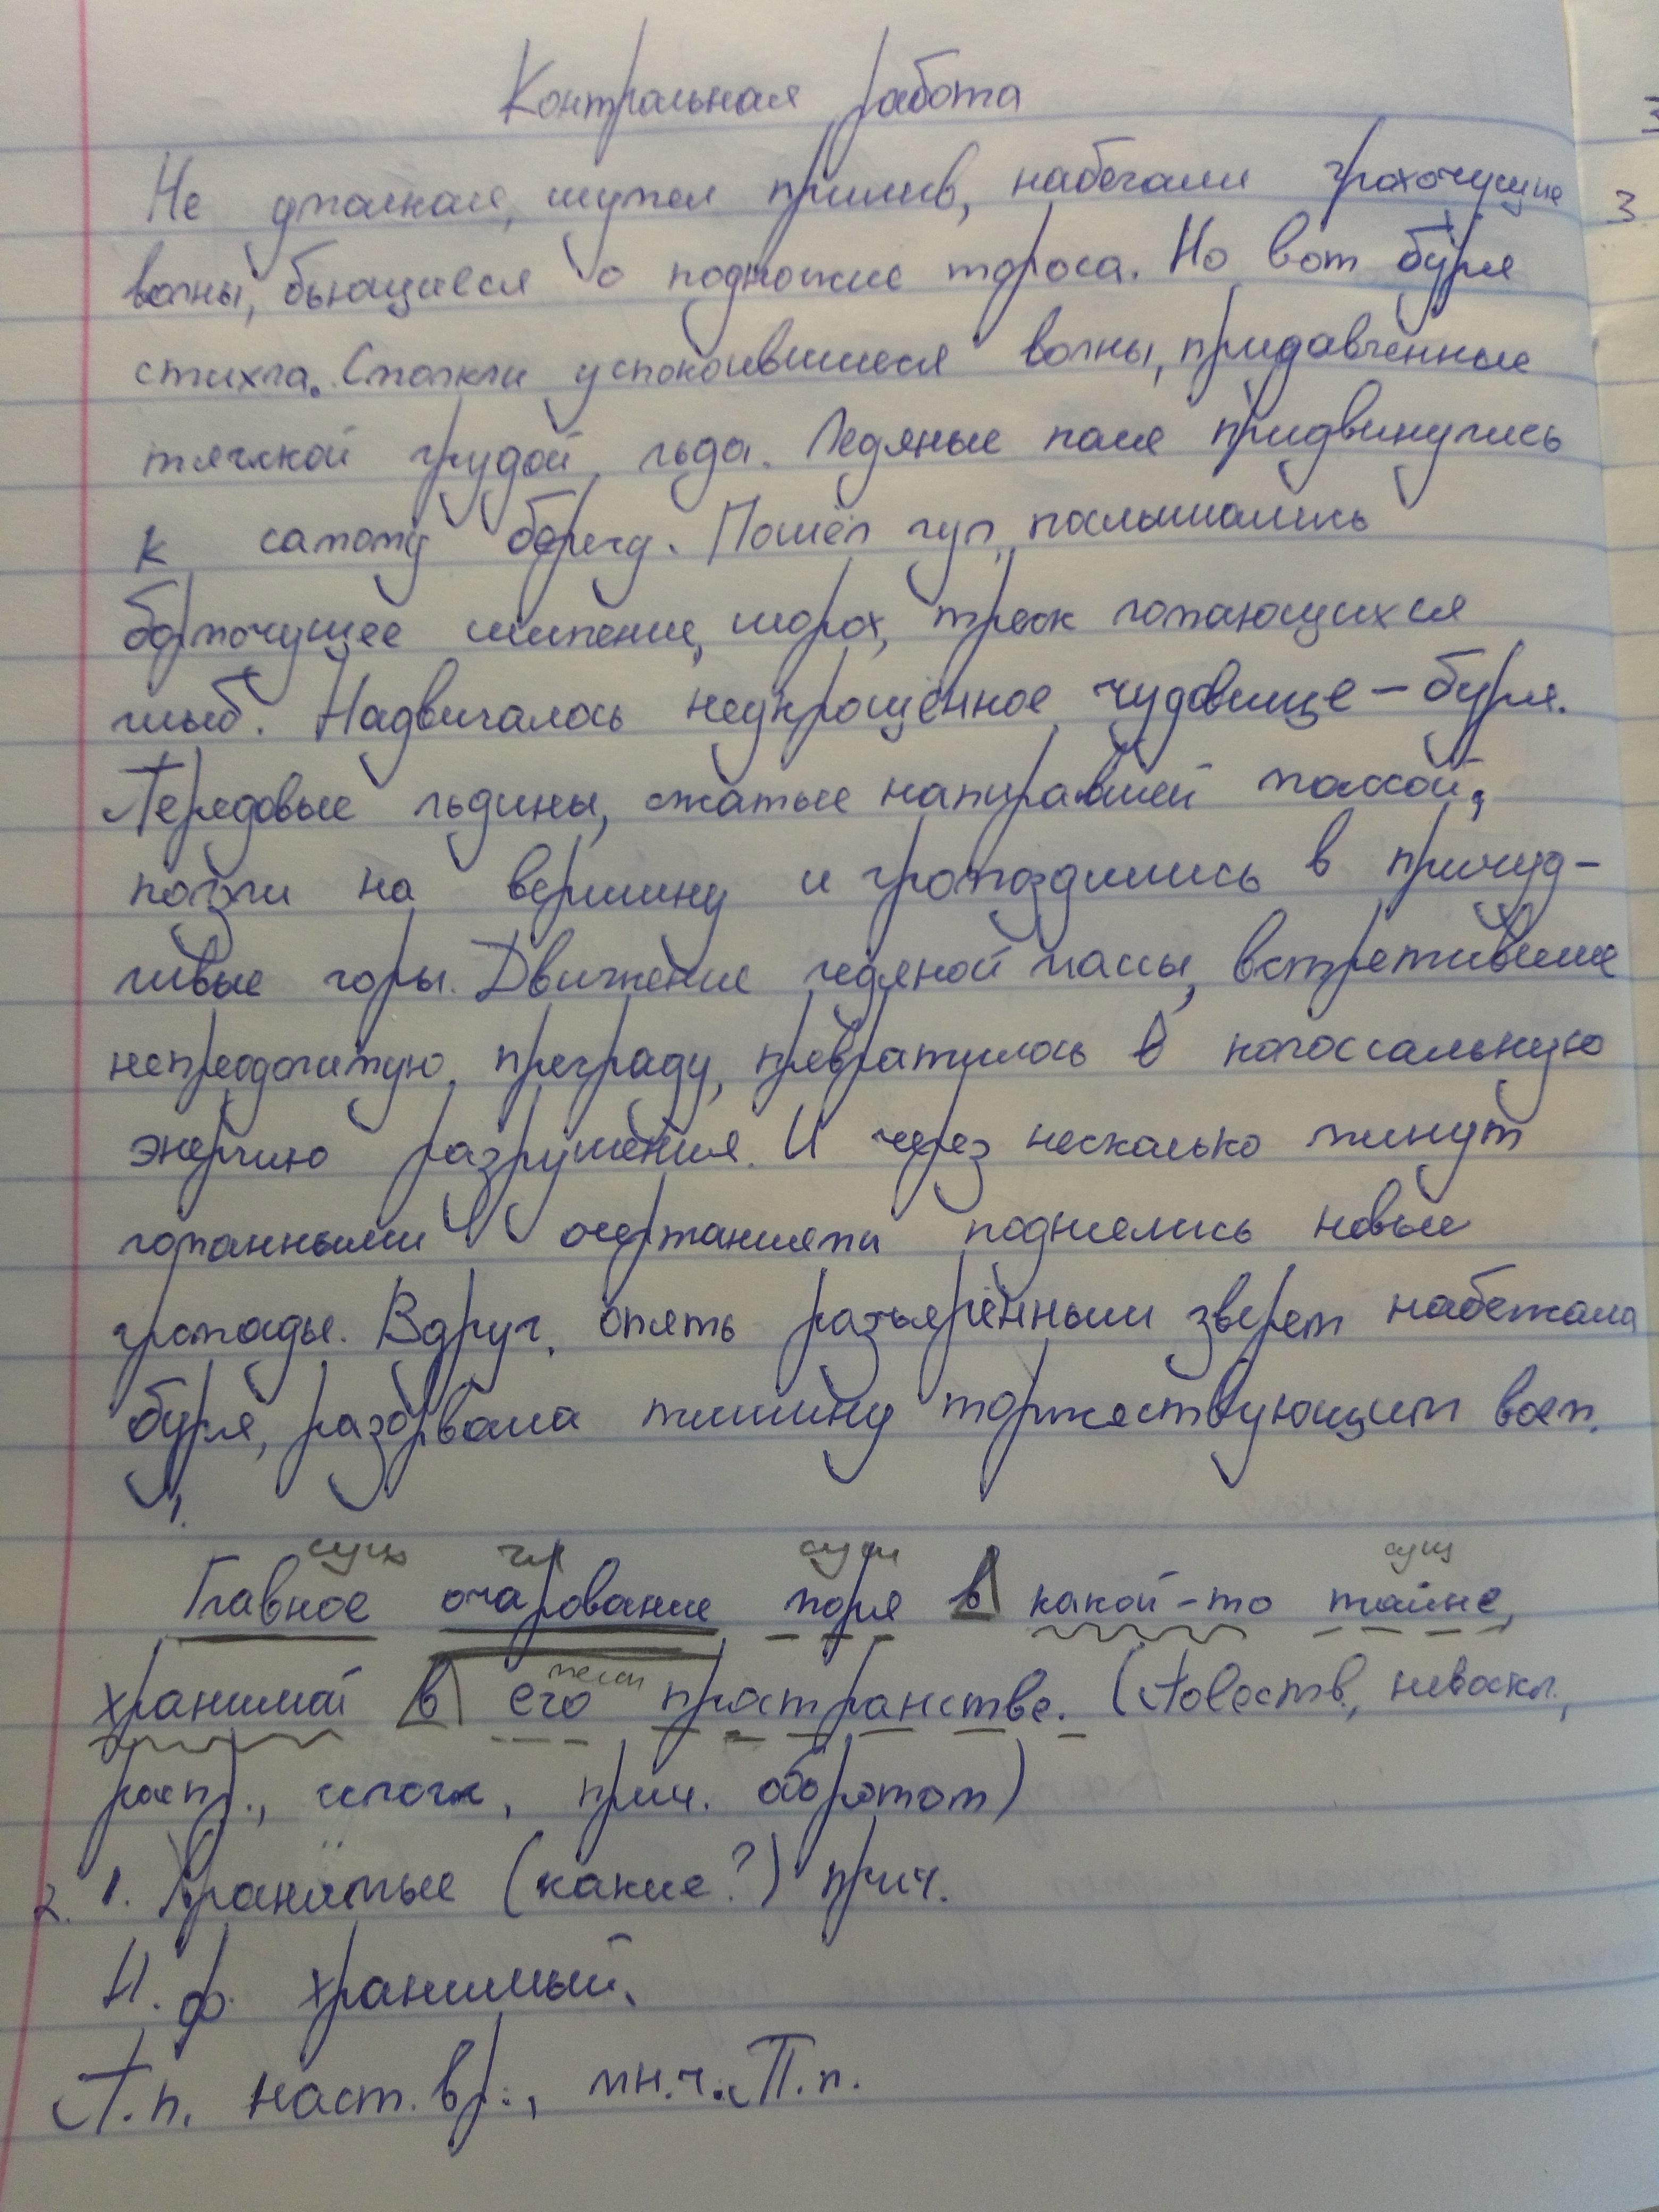 Контрольная работа
Не умолкая, шумел прилив, набегали грохочущие
волны, бьющиеся о подножие тороса. Но вот буря
стихла. Смолкли успокоившиеся волны, придавленные
тяжкой грудой льда. Ледяные поля придвинулись
к самому берегу. Пошёл гул, послышались
бормочущее шипение, шорох, треск ломающихся
глыб. Надвигалось неукрощённое чудовище – буря.
Передовые льдины, сжатые напиравшей массой,
ползли на вершину и громоздились в причуд-
ливые горы. Движение ледяной массы, встретившие
непреодолимую преграду, превратилось в колоссальную
энергию разрушения. И через несколько минут
ломанными очертаниями поднялись новые
громады. Вдруг, опять разъярённым зверем набежала
буря, разорвала тишину торжествующим воем.
1.
сущ сущ сущ
Главное очарование моря в какой-то тайне,
мест
хранимой в его пространстве. (Повеств., невоскл.,
расп., осложн, прич. оборотом)
2. 1. Хранимые (какие?) прич.
Н.ф. хранимый.
П.п. наст. вр., мн.ч. П.п.
3
3